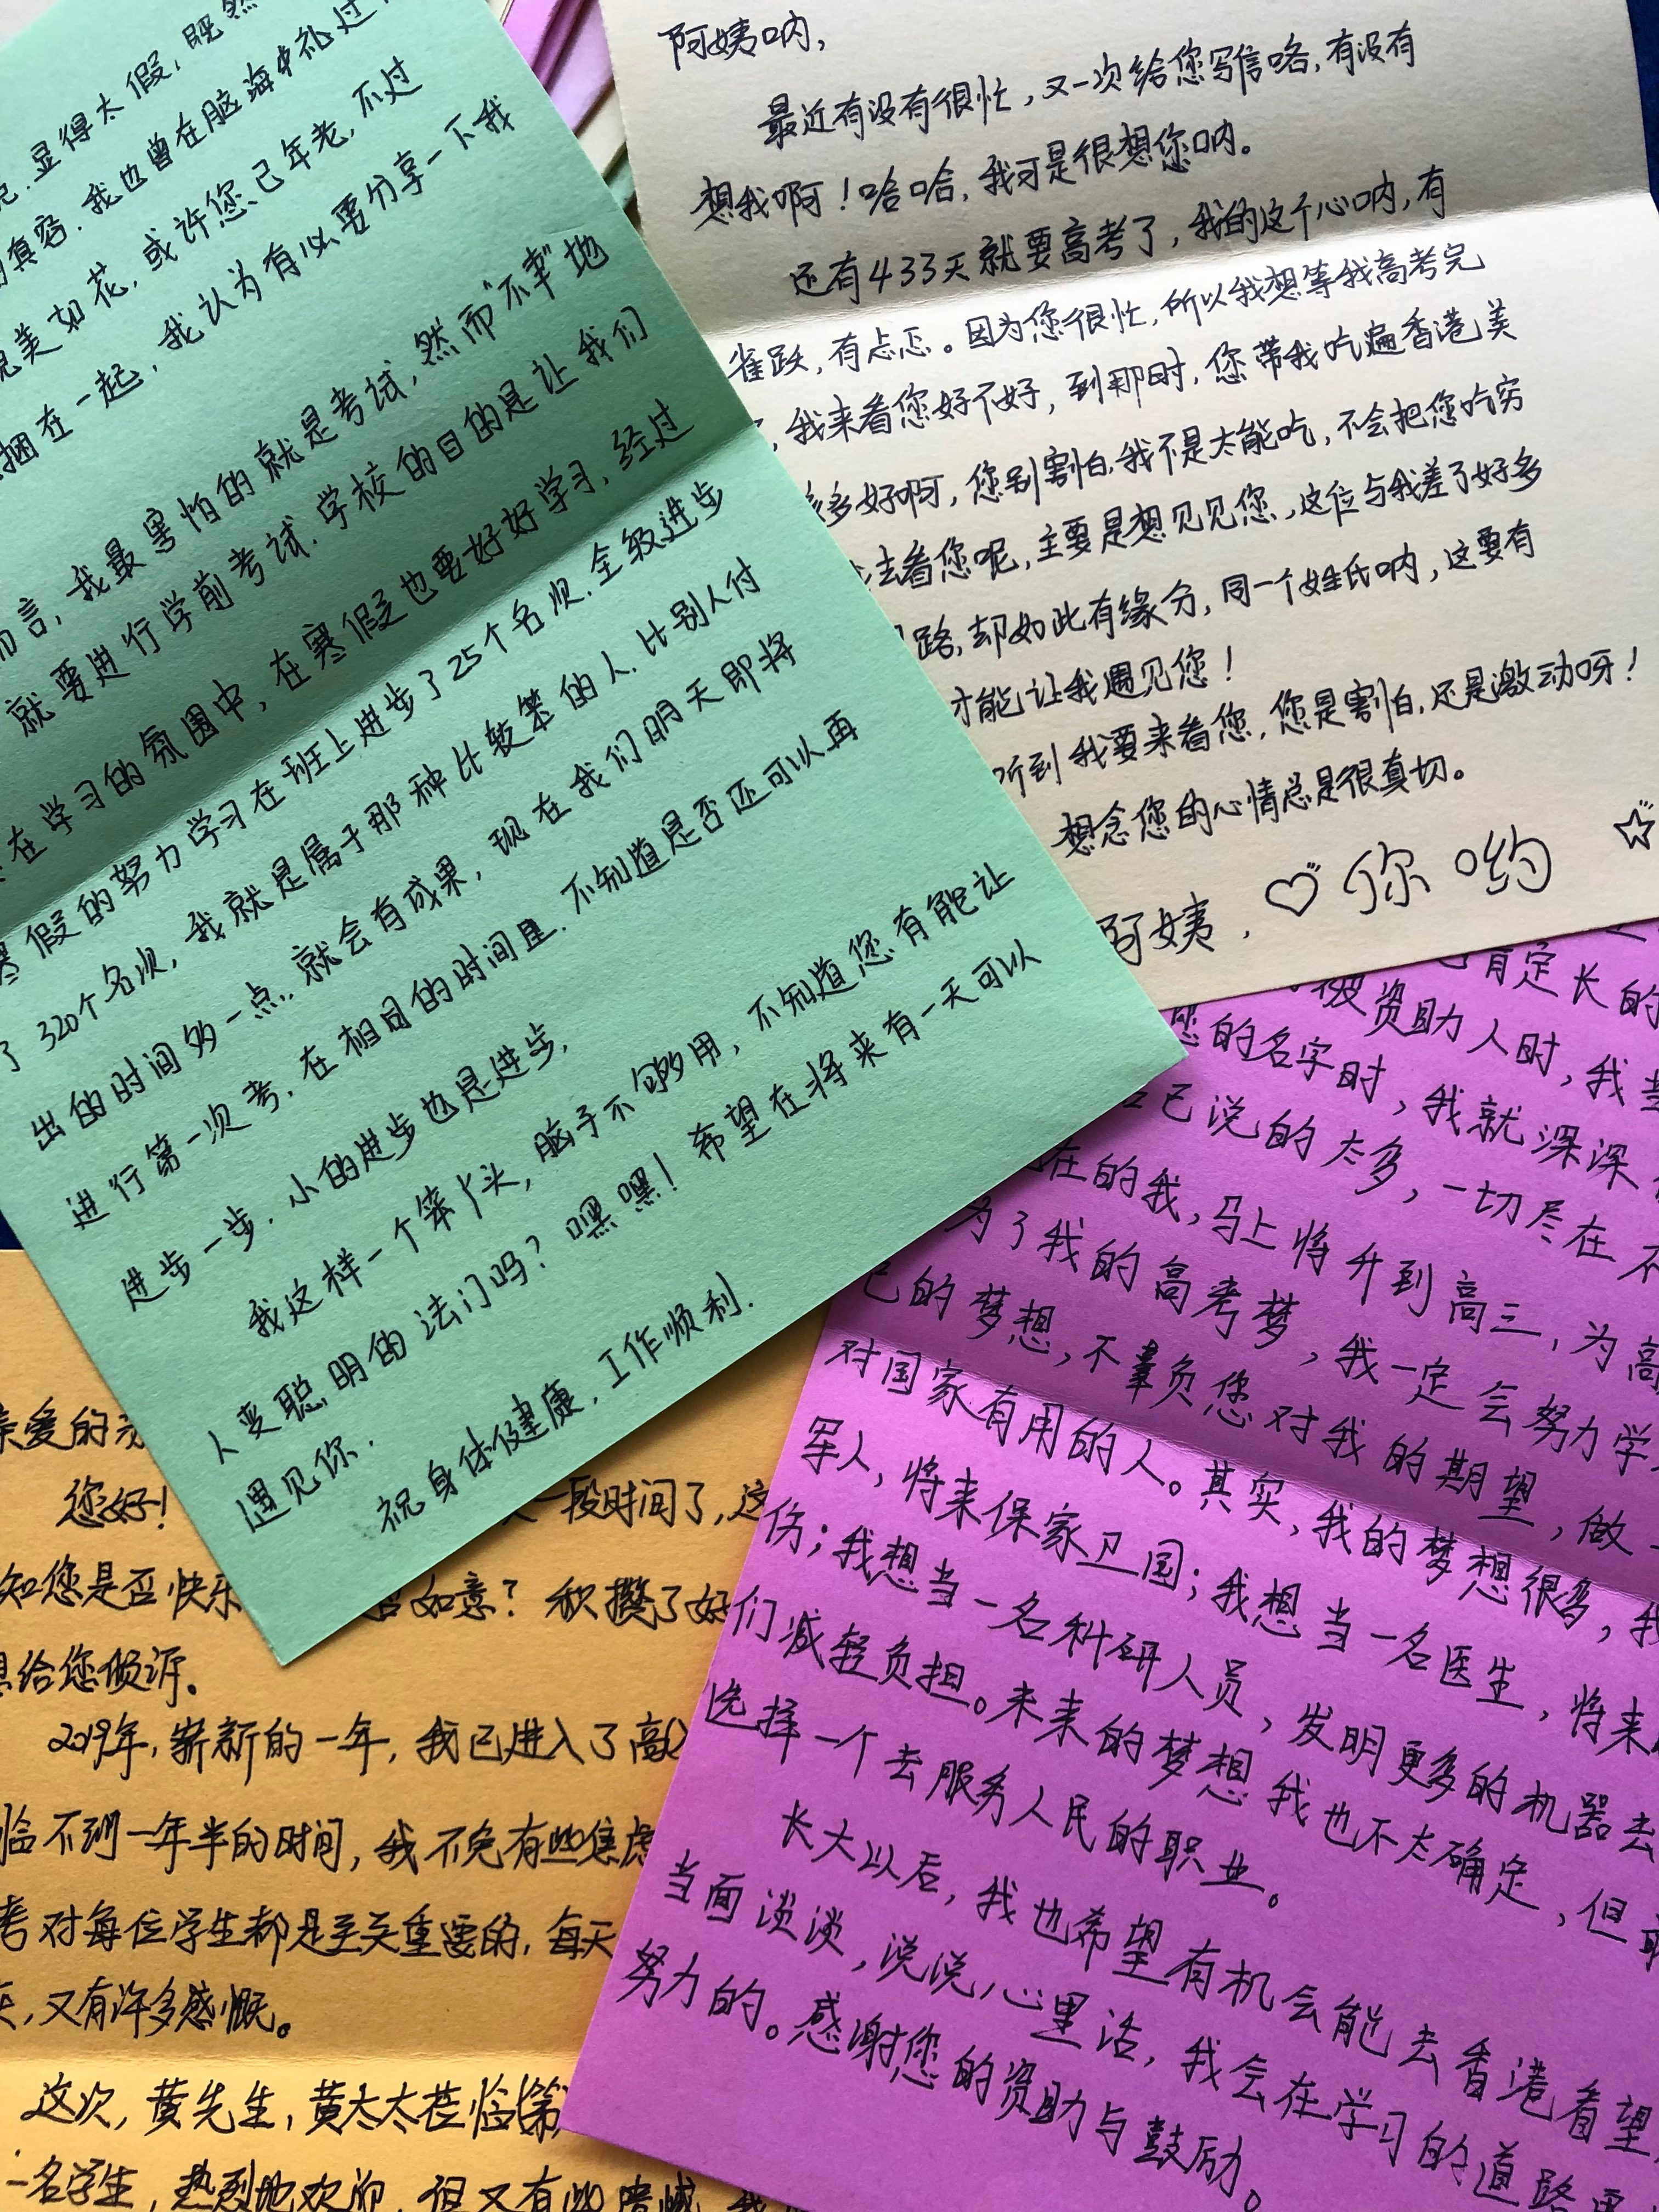 阿姨呐,
最近有没有很忙,又一次给您写信咯,有没有
想我啊!哈哈,我可是很想您呐。
还有433天就要高考了,我的这个心呐,有
雀跃,有忐忑。因为您很忙,所以我想等我高考完
,我来看您好不好,到那时,您带我吃遍香港美
多好啊,您别害怕,我不是太能吃,不会把您吃穷
去看您呢,主要是想见见您,这位与我差了好多
路,却如此有缘分,同一个姓氏呐,这要有
才能让我遇见您!
听到我要来看您,您是害怕,还是激动呀!
想念您的心情总是很真切。
阿姨,♡你哟☆
显得太假,既然
真容.我也曾在脑海中
美如花,或许您已年老,不过
捆在一起,我认为有必要分享一下我
而言,我最害怕的就是考试,然而"不幸"地
就要进行学前考试.学校的目的是让我们
在学习的氛围中,在寒假也要好好学习,经过
寒假的努力学习在班上进步了25个名次.全级进步
了320个名次,我就是属于那种比较笨的人.比别人付
出的时间多一点.就会有成果,现在我们明天即将
进行第一次考.在相同的时间里.不知道是否还可以再
进步一步.小的进步也是进步,
我这样一个笨丫头,脑子不够用,不知道您有能让
人变聪明的法门吗?嘿嘿!希望在将来有一天可以
遇见你.
祝身体健康,工作顺利.
肯定长的
被资助人时,我
您的名字时,我就深深
自己说的太多,一切尽在不
在的我,马上将升到高三,为高
为了我的高考梦,我一定会努力学
己的梦想,不辜负您对我的期望,做
对国家有用的人。其实,我的梦想很多,我
军人,将来保家卫国;我想当一名医生,将来
伤;我想当一名科研人员,发明更多的机器去
们减轻负担。未来的梦想我也不太确定,但
选择一个去服务人民的职业。
长大以后,我也希望有机会能去香港看望
当面谈谈,说说心里话,我会在学习的道路
努力的。感谢您的资助与鼓励。
亲爱的
您好! 一段时间了,这
知您是否快乐 如意?积攒了好
给您倾诉。
2019年,崭新的一年,我已进入了高
临不到一年半的时间,我不免有些焦虑
考对每位学生都是至关重要的,每天
天,又有许多感慨。
这次,黄先生,黄太太莅临
一名学生,热烈地欢迎,但又有些